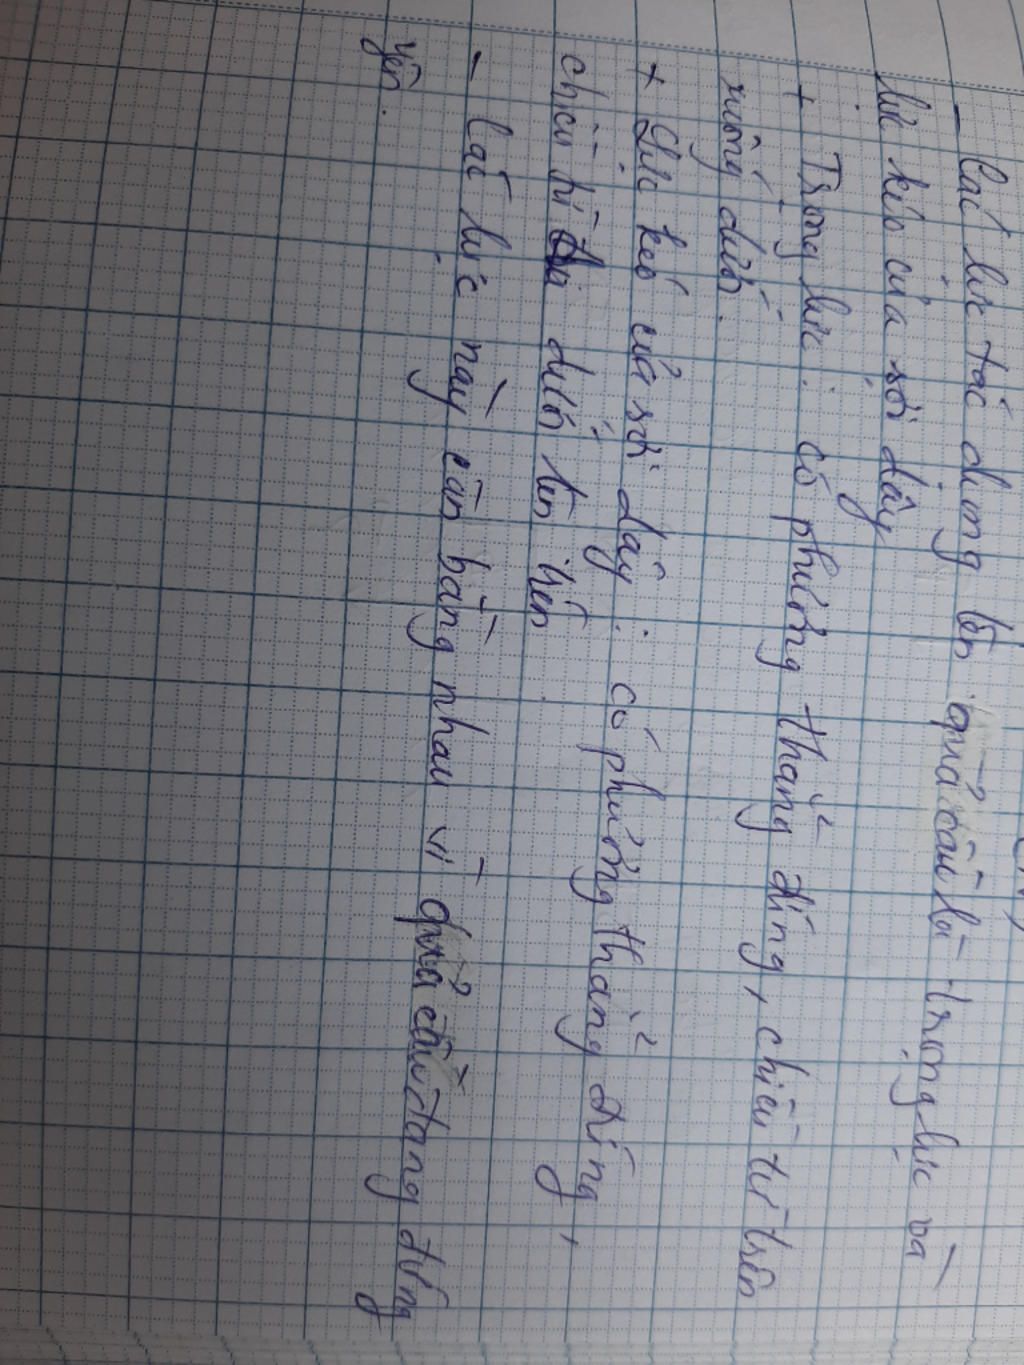 - Các lực tác dụng lên quả cầu là trọng lực và
lực kéo của sợi dây
+ Trọng lực: có phương thẳng đứng, chiều từ trên
xuống dưới.
+ Lực kéo của sợi dây: có phương thẳng đứng,
chiều từ dưới lên trên.
- Các lực này cân bằng nhau vì quả cầu đang đứng
yên.